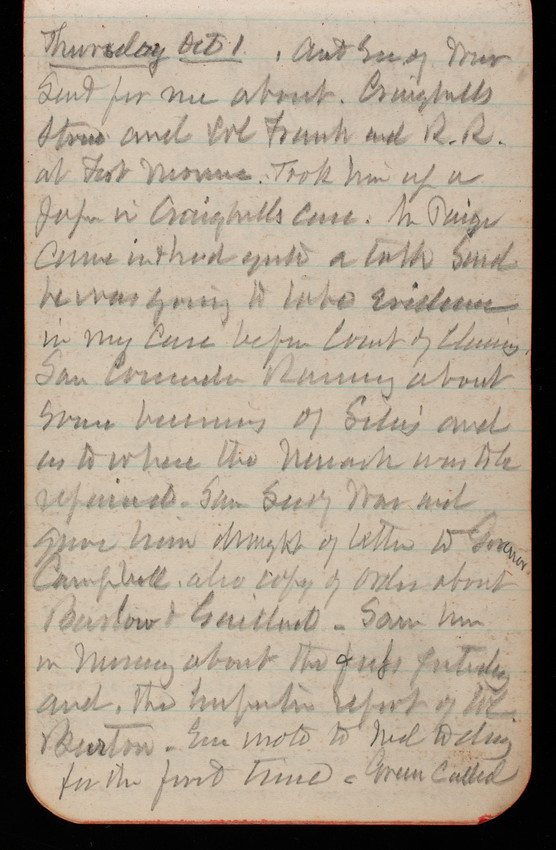 Thursday Oct 1. Act Secy War
Sent for me about Craighills
and Col Frank and R. R.
at Fort Monroe. Took him up a
in Craighills case. Mr Paige
came in & had quite a talk Said
he was going to take evidence
in my case before Court of Claims.
Saw Commander Ramsey about
some business of and
as to where the Newark was to be
repaired. Saw Secy War and
gave him draught of letter to Governor
Campbell. also copy of order about
Barlow & Gaillard - Saw him
in about the
and the report of Col
Burton - wrote to Ned to day
for the first time - Green called